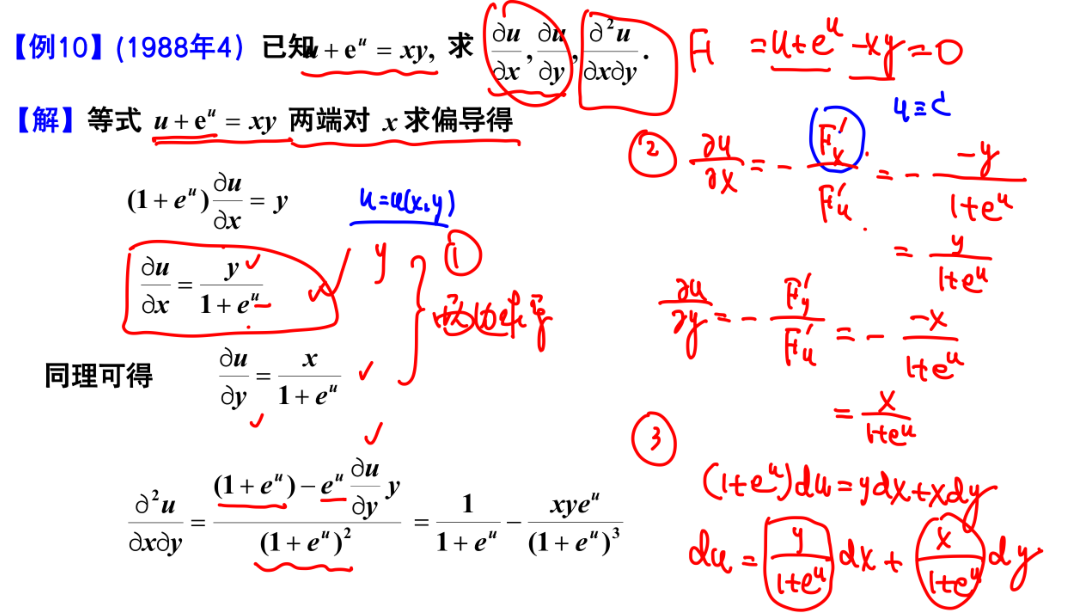 【例10】(1988年4) 已知 u + e^u = xy, 求 ∂u/∂x, ∂u/∂y, ∂²u/∂x∂y.
F = u+e^u -xy = 0
u ≡ c
【解】等式 u + e^u = xy 两端对 x 求偏导得
(1 + e^u) ∂u/∂x = y
u=u(x,y)
∂u/∂x = y/(1 + e^u)
y
①
同理可得 ∂u/∂y = x/(1 + e^u)
∂²u/∂x∂y = ((1 + e^u) − e^u ∂u/∂y y)/(1 + e^u)² = 1/(1 + e^u) − xye^u/(1 + e^u)³
② ∂u/∂x = - F'x/F'u = - -y/(1+e^u)
= y/(1+e^u)
∂u/∂y = - F'y/F'u = - -x/(1+e^u)
= x/(1+e^u)
③
(1+e^u)du = ydx+xdy
du = y/(1+e^u) dx + x/(1+e^u) dy